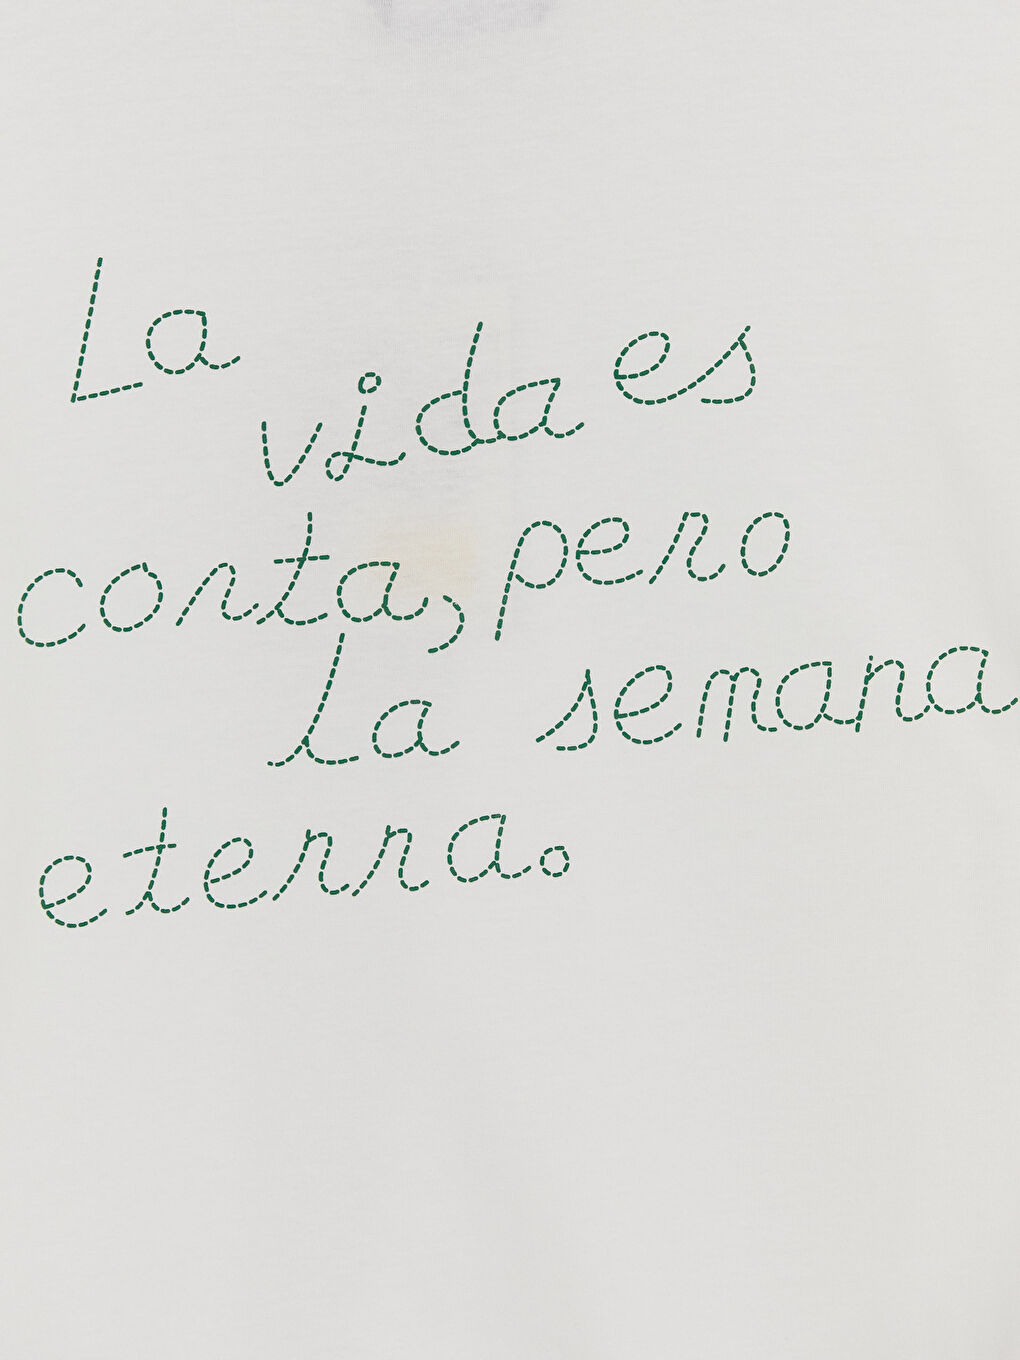 La vida es
corta, pero
la semana
eterra.